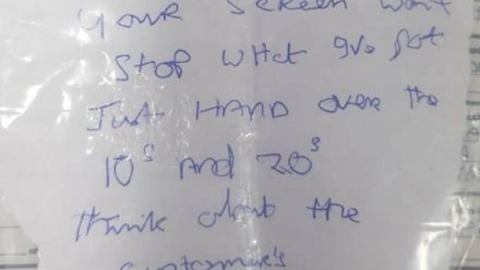 Your SCREEN won't
STOP WHat gve got
Just HAND over the
10s and 20s
think about the
customer's